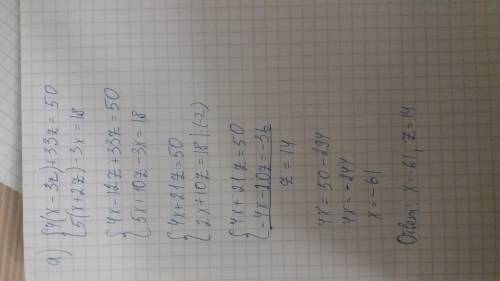 а) {4(x-3z)+33z=50
{5(x+2z)-3x=18
{4x-12z+33z=50
{5x+10z-3x=18
{4x+21z=50
{2x+10z=18 |(-2)
{4x+21z=50
{-4x-20z=-36
z=14
4x=50-294
4x=-244
x=-61
Ответ: x=-61, z=14